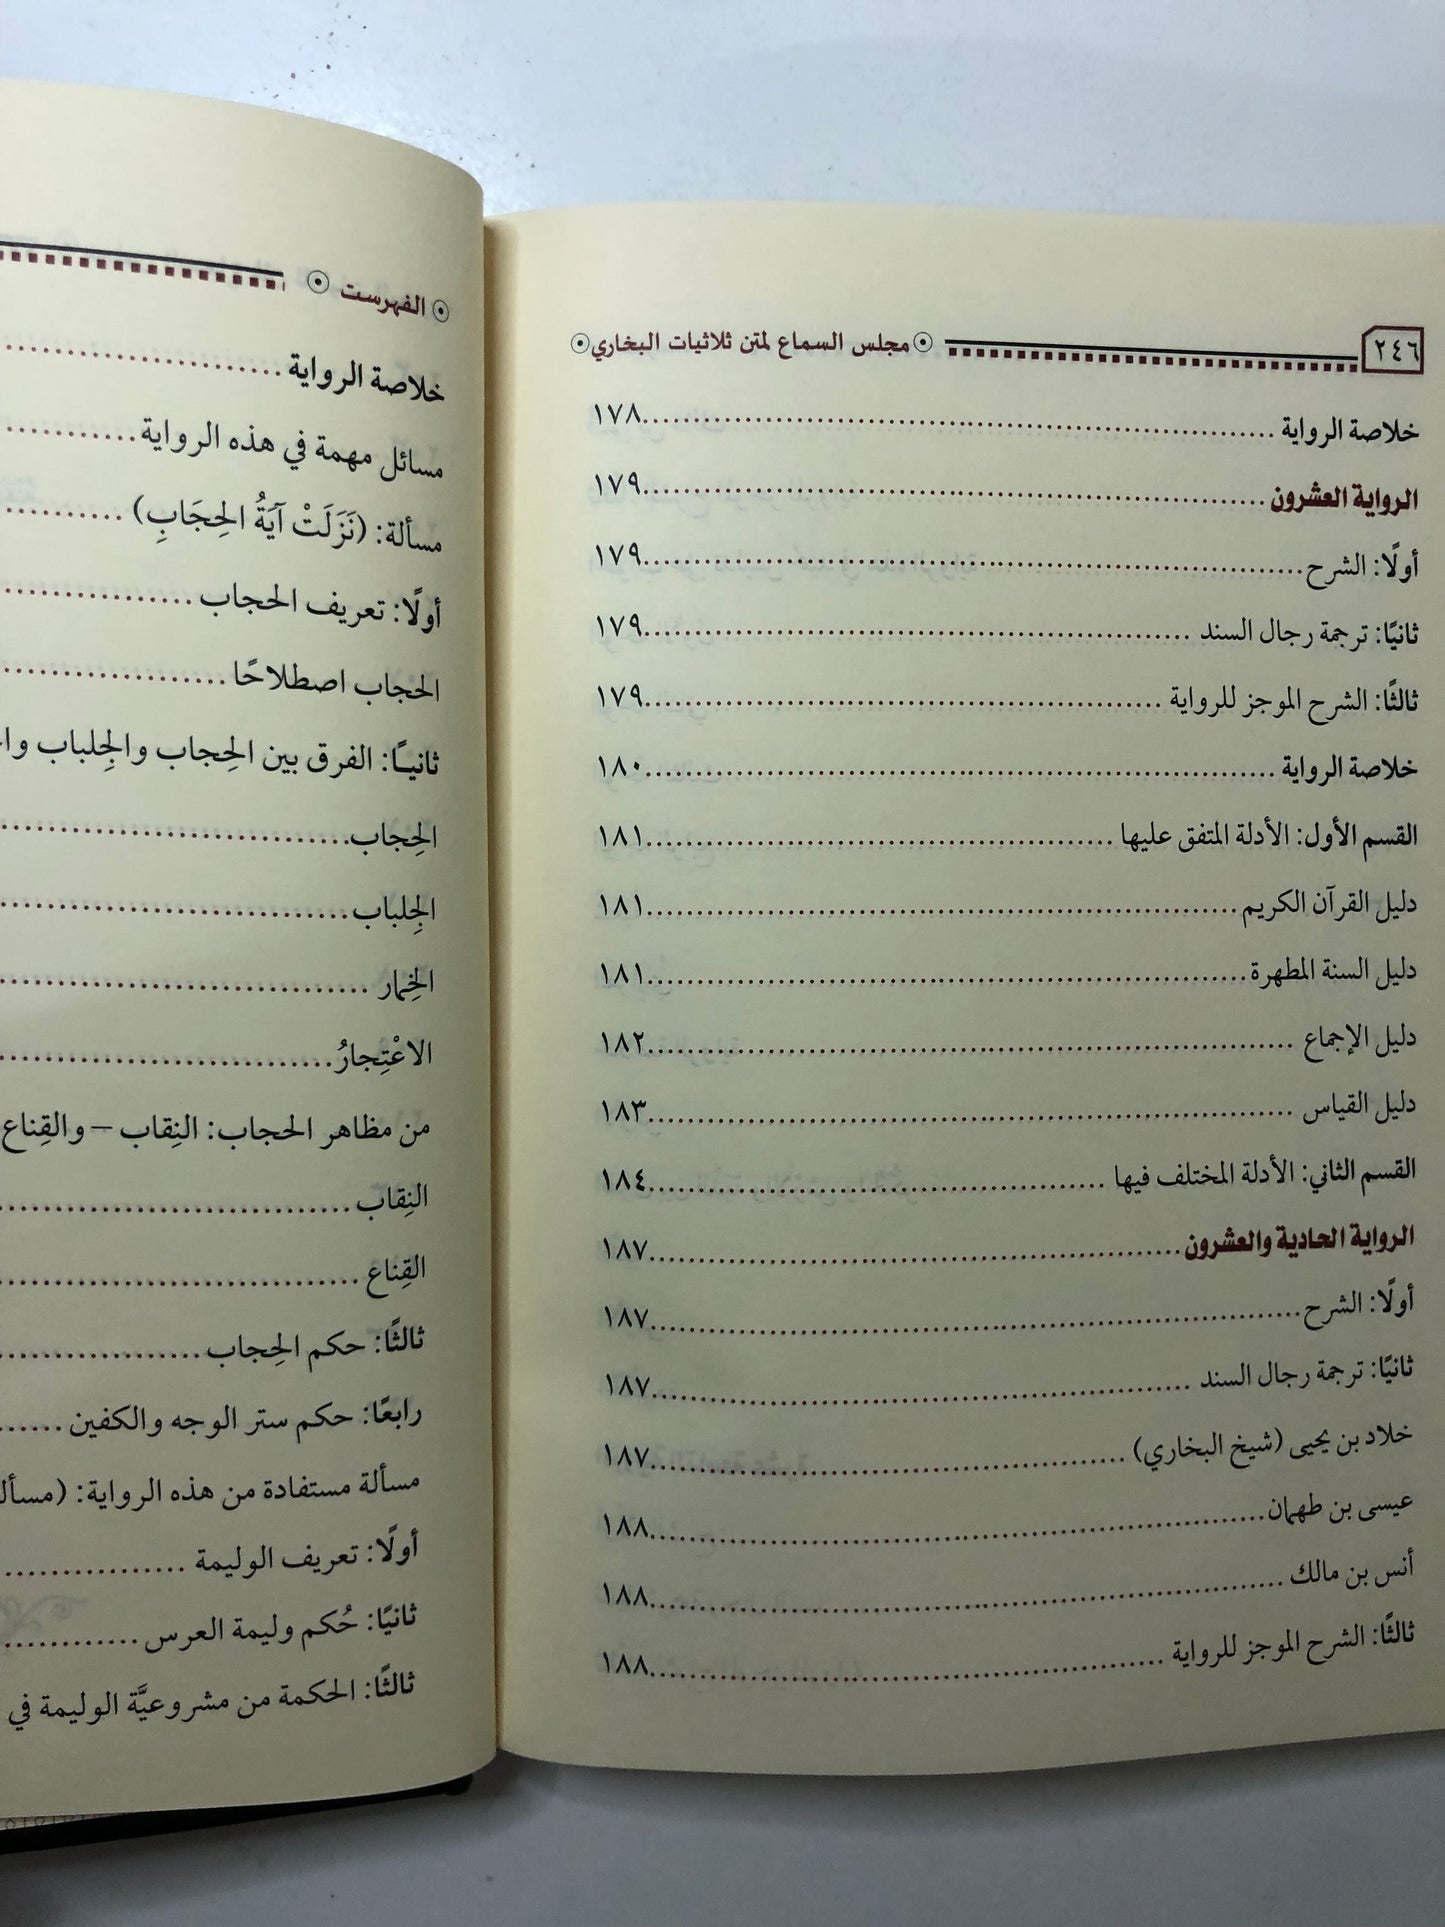 ٢٤٦ مجلس السماع لمتن ثلاثيات البخاري
خلاصة الرواية ........ ١٧٨
الرواية العشرون ........ ١٧٩
أولًا: الشرح ........ ١٧٩
ثانيًا: ترجمة رجال السند ........ ١٧٩
ثالثًا: الشرح الموجز للرواية ........ ١٧٩
خلاصة الرواية ........ ١٨٠
القسم الأول: الأدلة المتفق عليها ........ ١٨١
دليل القرآن الكريم ........ ١٨١
دليل السنة المطهرة ........ ١٨١
دليل الإجماع ........ ١٨٢
دليل القياس ........ ١٨٣
القسم الثاني: الأدلة المختلف فيها ........ ١٨٤
الرواية الحادية والعشرون ........ ١٨٧
أولًا: الشرح ........ ١٨٧
ثانيًا: ترجمة رجال السند ........ ١٨٧
خلاد بن يحيى (شيخ البخاري) ........ ١٨٧
عيسى بن طهمان ........ ١٨٨
أنس بن مالك ........ ١٨٨
ثالثًا: الشرح الموجز للرواية ........ ١٨٨
الفهرست
خلاصة الرواية ........
مسائل مهمة في هذه الرواية ........
مسألة: (نَزَلَتْ آيَةُ الحِجَابِ) ........
أولًا: تعريف الحجاب ........
الحجاب اصطلاحًا ........
ثانيًا: الفرق بين الحِجاب والجِلباب
الحِجاب ........
الجِلباب ........
الخِمار ........
الاعْتِجارُ ........
من مظاهر الحجاب: النِقاب – والقِناع
النِقاب ........
القِناع ........
ثالثًا: حكم الحِجاب ........
رابعًا: حكم ستر الوجه والكفين ........
مسألة مستفادة من هذه الرواية:
أولًا: تعريف الوليمة ........
ثانيًا: حُكم وليمة العرس ........
ثالثًا: الحكمة من مشروعيَّة الوليمة في